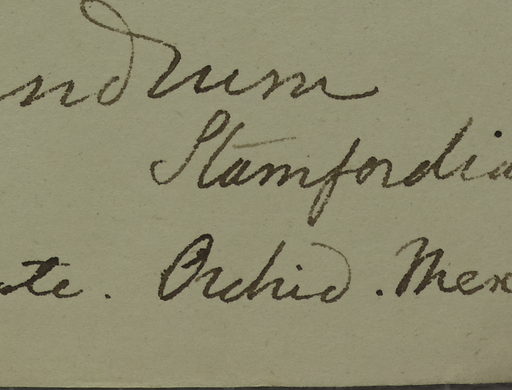 ndrum
Stamfordia
ate. Orchid. Mex